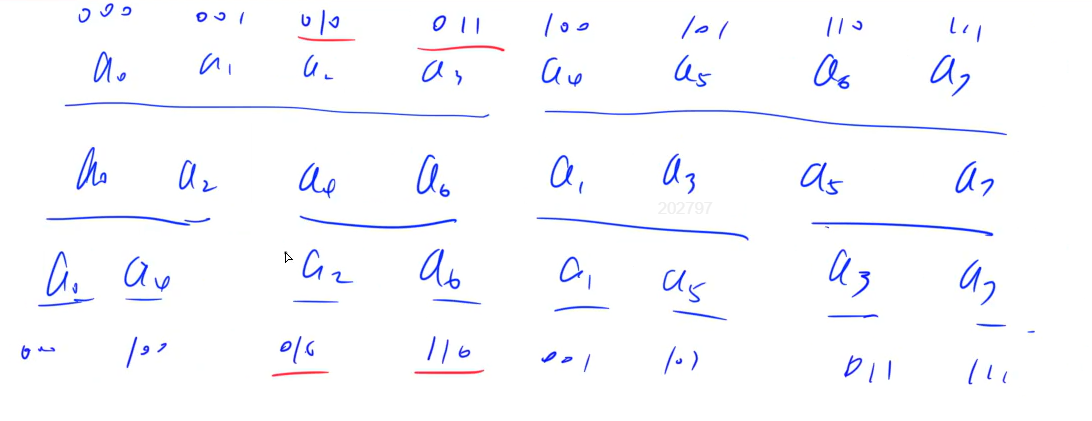 000 001 010 011 100 101 110 111
a₀ a₁ a₂ a₃ a₄ a₅ a₆ a₇
a₀ a₂ a₄ a₆ a₁ a₃ a₅ a₇
202797
a₀ a₄ a₂ a₆ a₁ a₅ a₃ a₇
000 100 010 110 001 101 011 111